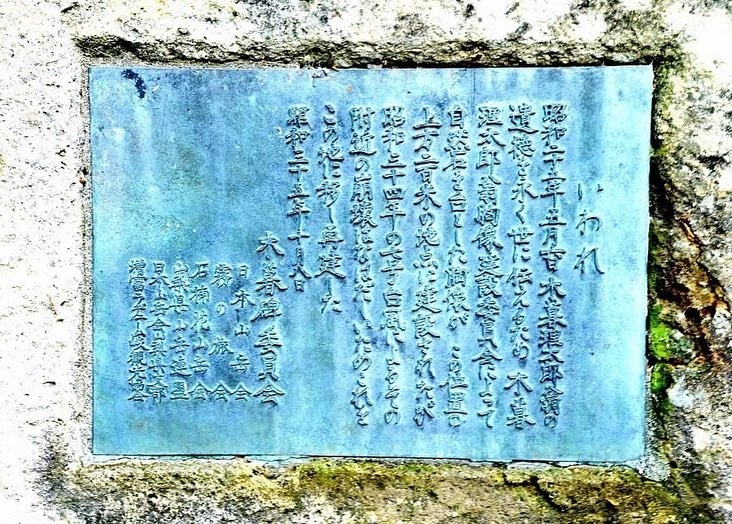 いわれ
昭和二十五年五月 木暮理太郎翁の
遺徳を永く世に伝えるため 木暮
理太郎翁胸像建設委員会によって
自然石を台とした胸像が この位置の
上方二百米の地点に建設されたが
昭和三十四年の七号台風によるその
附近の崩壊にひんしたためこれを
この地に移し再建した
昭和三十五年十月八日
木暮碑委員会
日本山岳会
霧の旅会
石楠花山岳会
山梨県山岳連盟